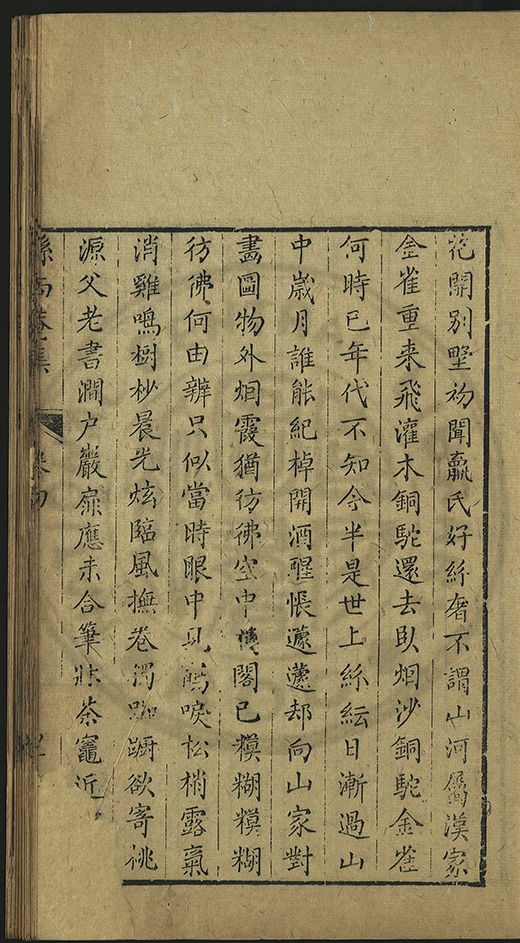 花開别墅初聞嬴氏好紛奢不謂山河屬漢家
金雀重来飛灌木銅駝還去臥烟沙銅駝金雀
何時已年代不知今半是世上紛紜日漸過山
中歲月誰能紀棹開酒醒悵蘧蘧却向山家對
畫圖物外烟霞猶彷彿空中樓閣已糢糊糢糊
彷彿何由辨只似當時眼中見鶴唳松梢露氣
消雞鳴樹杪晨光炫臨風撫卷獨踟躕欲寄桃
源父老書澗户巖扉應未合筆牀茶竈近
孫西菴集 卷四